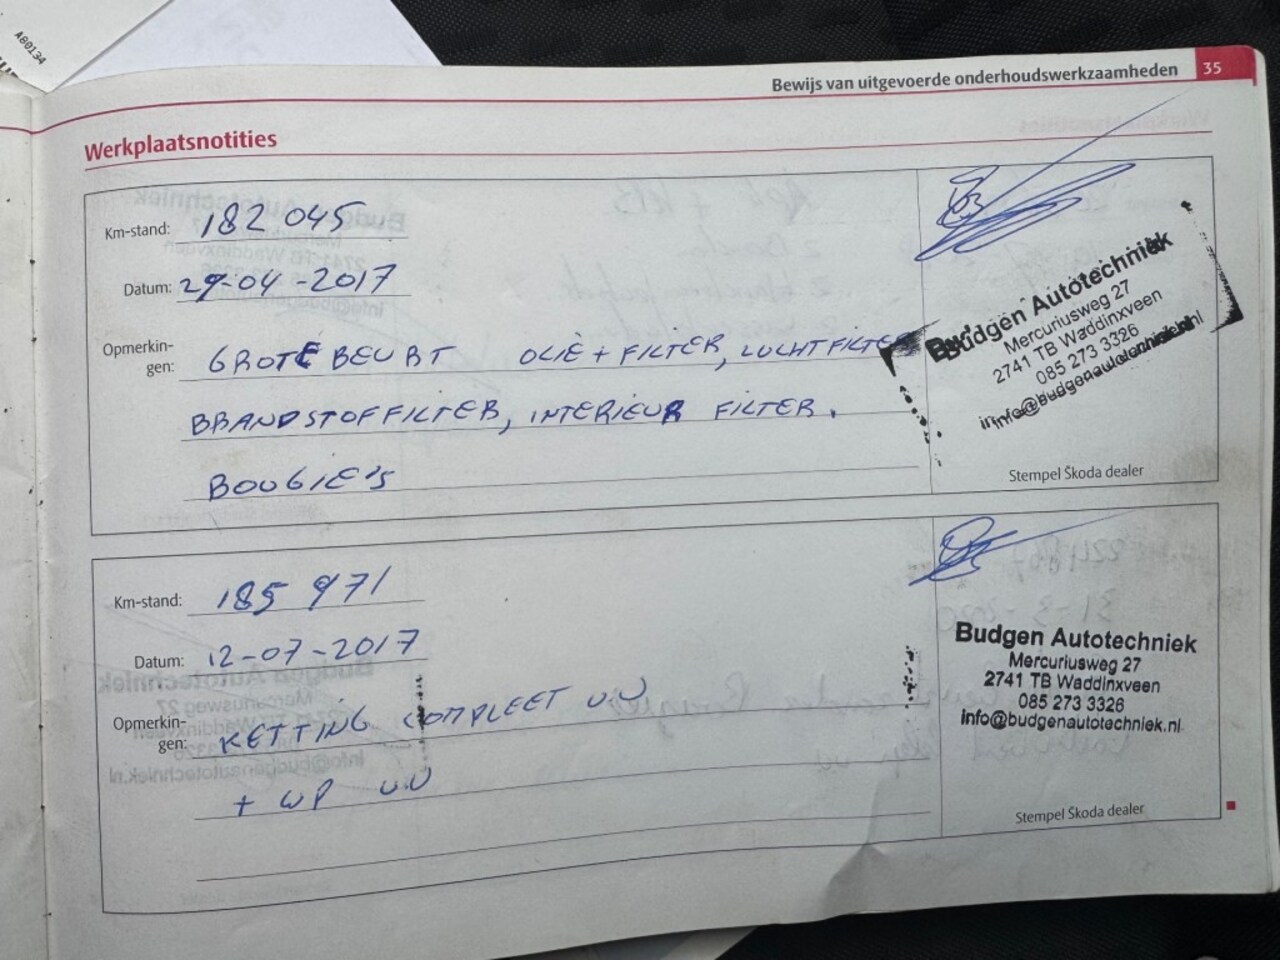 A80134
Bewijs van uitgevoerde onderhoudswerkzaamheden 35
Werkplaatsnotities
Km-stand: 182 045
Datum: 29-04-2017
Opmerkin-
gen: GROTE BEURT OLIE + FILTER, LUCHTFILTER
BRANDSTOFFILTER, INTERIEUR FILTER.
BOUGIE'S
Budgen Autotechniek
Mercuriusweg 27
2741 TB Waddinxveen
085 273 3326
info@budgenautotechniek.nl
Stempel Škoda dealer
Km-stand: 185 971
Datum: 12-07-2017
Opmerkin-
gen: KETTING COMPLEET V.V
+ WP V.V
Budgen Autotechniek
Mercuriusweg 27
2741 TB Waddinxveen
085 273 3326
info@budgenautotechniek.nl
Stempel Škoda dealer